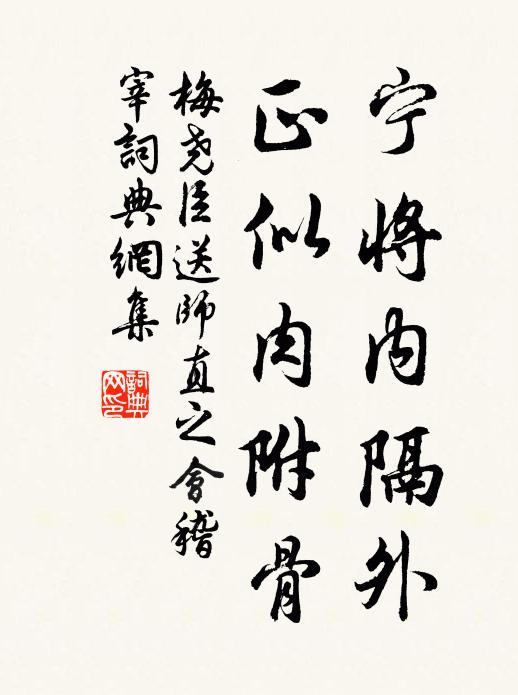 宁将内隔外
正似肉附骨
梅尧臣送師直之會稽
宰詞典網集
詞典
网印